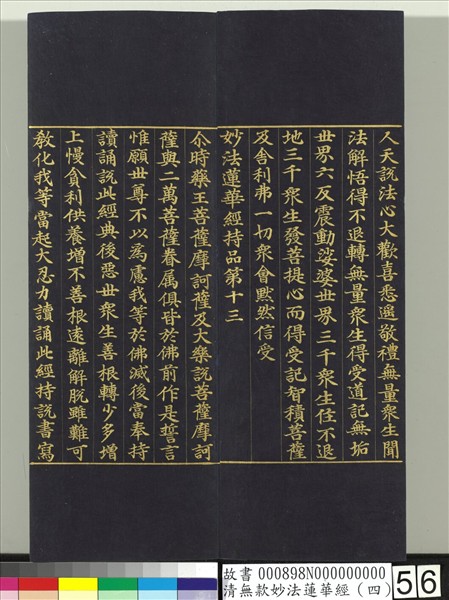 人天說法心大歡喜悉遙敬禮無量衆生聞
法解悟得不退轉無量衆生得受道記無垢
世界六反震動娑婆世界三千衆生住不退
地三千衆生發菩提心而得受記智積菩薩
及舍利弗一切衆會默然信受
妙法蓮華經持品第十三
尒時藥王菩薩摩訶薩及大樂說菩薩摩訶
薩與二萬菩薩眷屬俱皆於佛前作是誓言
惟願世尊不以為慮我等於佛滅後當奉持
讀誦說此經典後惡世衆生善根轉少多增
上慢貪利供養增不善根遠離解脫雖難可
敎化我等當起大忍力讀誦此經持說書寫
故書 000898N000000000
清無款妙法蓮華經（四）
56